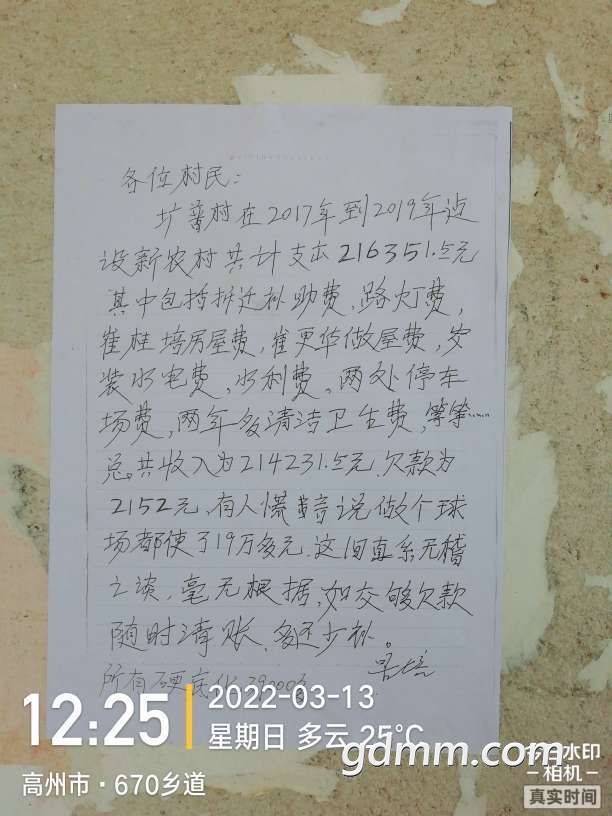 各位村民：
扩普村在2017年到2019年边
设新农村共计支出216351.5元
其中包括拆迁补助费，路灯费，
崔桂培房屋费，崔更华做屋费，安
装水电费，水利费，两处停车
场费，两年多清洁卫生费，等等……
总共收入为214231.5元，欠款为
2152元，有人慌 说做个球
场都使了19万多元，这间直系无稽
之谈，毫无根据，如交够欠款
随时清账，多还少补。
所有硬
12:25
2022-03-13
星期日 多云 25°C
高州市·670乡道
gdmm.com
今日水印
-相机-
真实时间